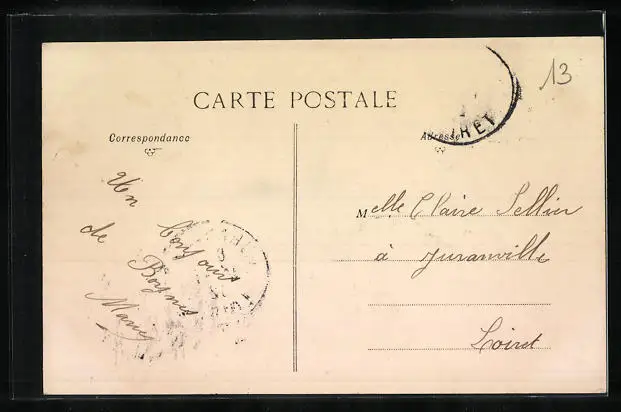 13
CARTE POSTALE
Correspondance
Adresse
IRET
Un
bonjour
de
Boynes
Melle Claire Sellier
à Juranville
Loiret